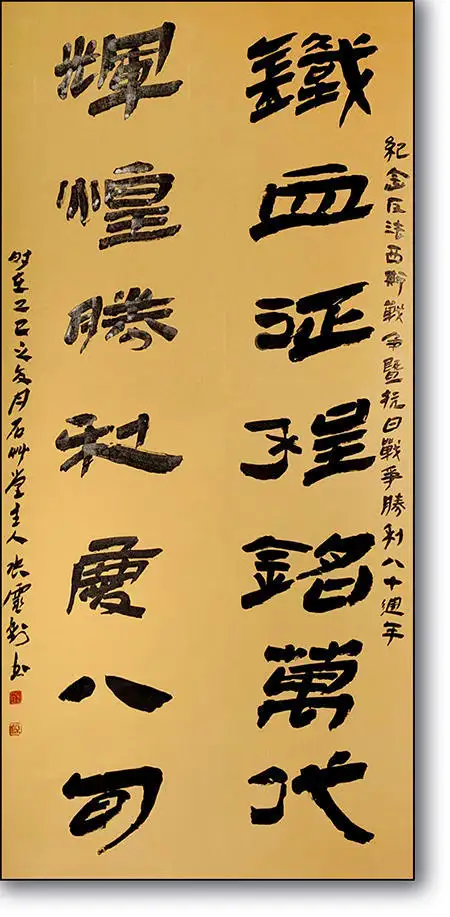 紀念反法西斯戰爭暨抗日戰爭勝利八十週年
鐵血征程銘萬代
輝煌勝利慶八旬
時在乙巳之夏月石艸堂主人張靈劍書